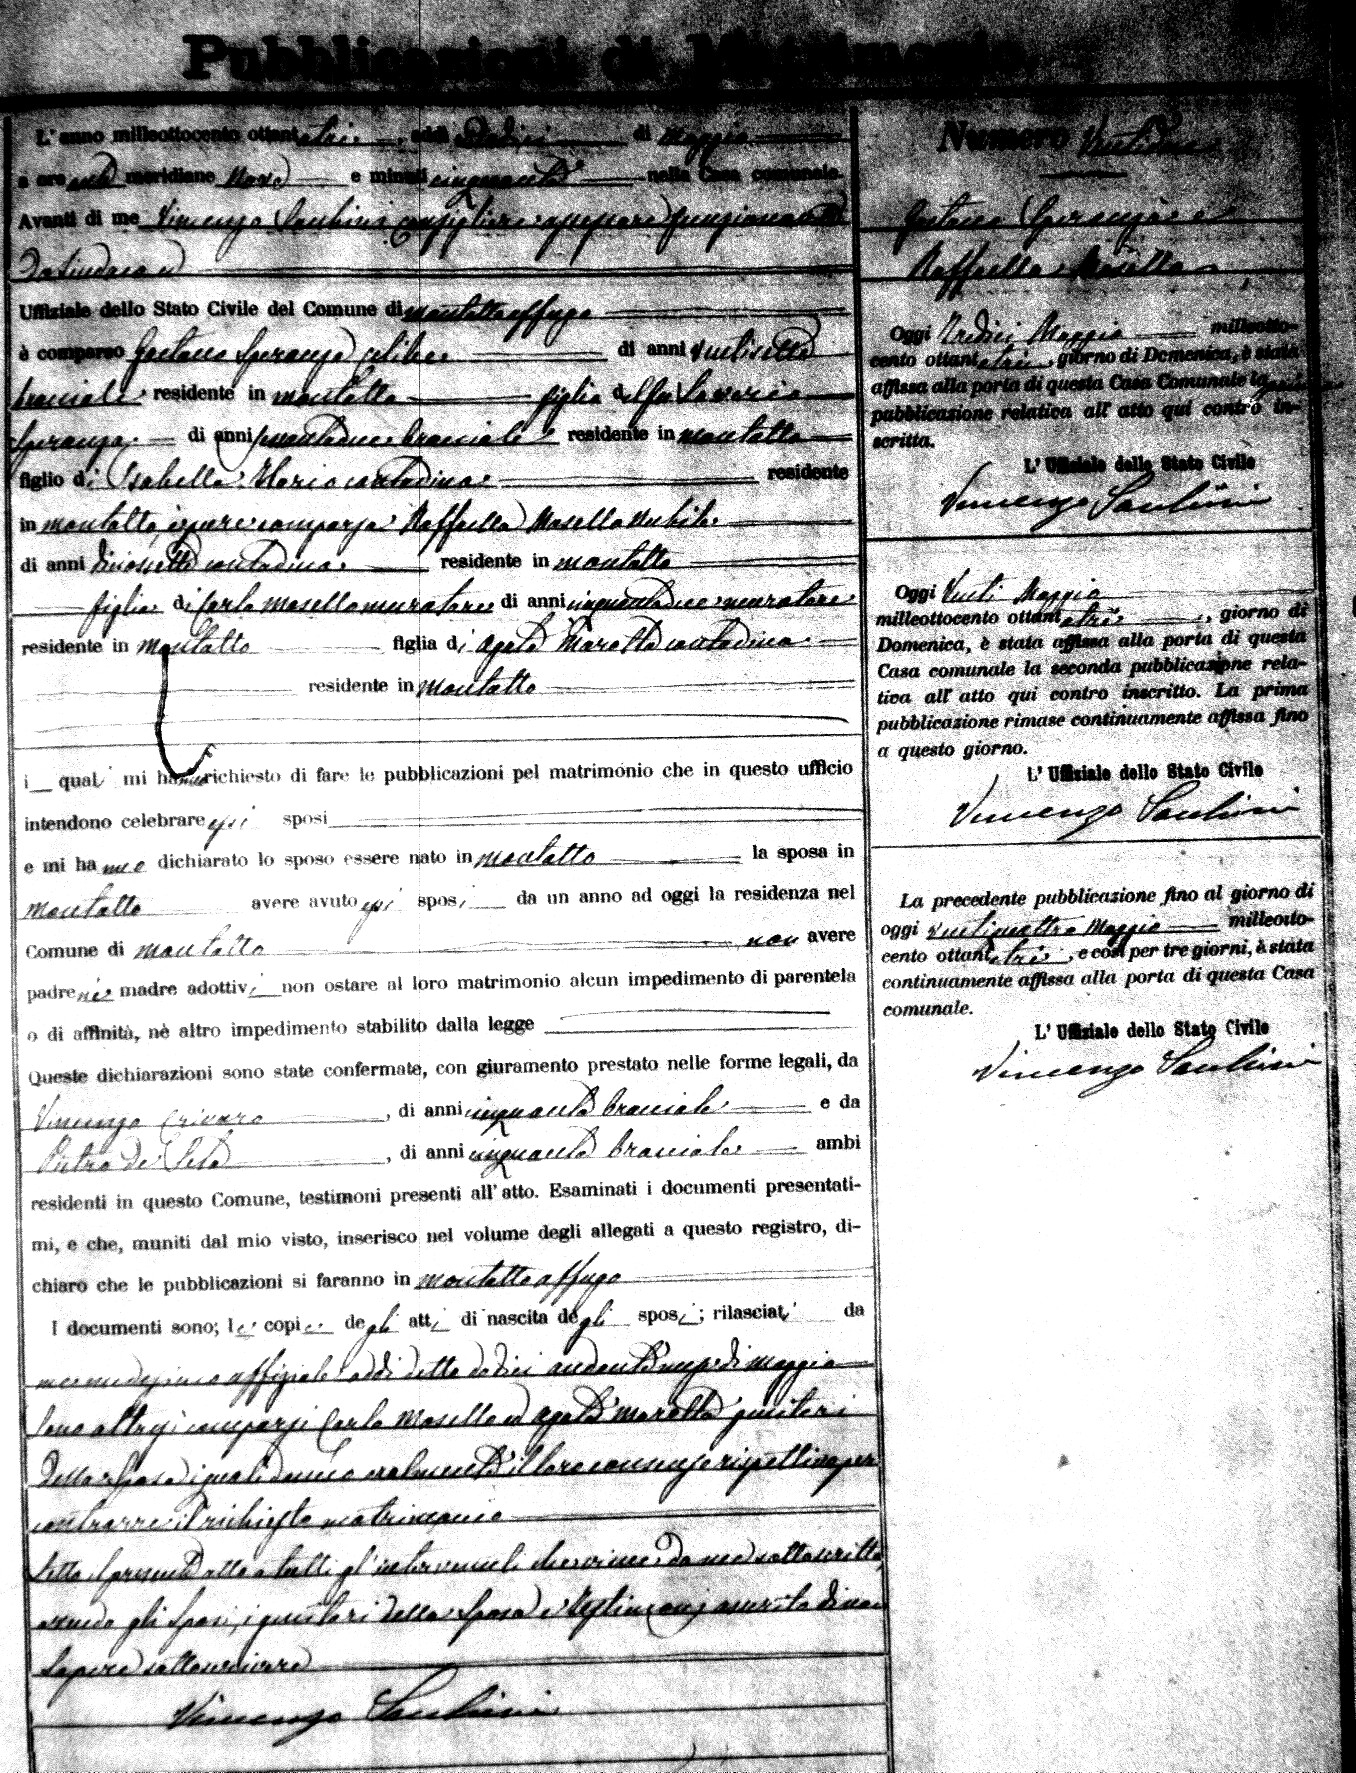 Pubblicazioni di Matrimonio
L'anno milleottocento ottantatre, addì dodici di Maggio
a ore meridiane nove e minuti cinquanta nella Casa comunale.
Avanti di me Vincenzo consigliere funzionante
Da Sindaco
Uffiziale dello Stato Civile del Comune di Montalto Uffugo
è comparso Gaetano Speranza celibe di anni ventisette
bracciale residente in Montalto figlio del fu Saverio
Speranza di anni bracciale residente in Montalto
figlio di Isabella contadina residente
in Montalto, è pure comparsa Raffaella Masella nubile
di anni contadina residente in Montalto
figlia di Carlo Masella muratore di anni cinquantadue muratore
residente in Montalto figlia di Agata Marotta contadina
residente in Montalto
i quali mi hanno richiesto di fare le pubblicazioni pel matrimonio che in questo ufficio
intendono celebrare essi sposi
e mi hanno dichiarato lo sposo essere nato in Montalto la sposa in
Montalto avere avuto essi sposi da un anno ad oggi la residenza nel
Comune di Montalto non avere
padre nè madre adottivi non ostare al loro matrimonio alcun impedimento di parentela
o di affinità, nè altro impedimento stabilito dalla legge
Queste dichiarazioni sono state confermate, con giuramento prestato nelle forme legali, da
Vincenzo Crivaro, di anni cinquanta bracciale e da
Pietro De Seta, di anni cinquanta bracciale ambi
residenti in questo Comune, testimoni presenti all'atto. Esaminati i documenti presentati-
mi, e che, muniti dal mio visto, inserisco nel volume degli allegati a questo registro, di-
chiaro che le pubblicazioni si faranno in Montalto Uffugo
I documenti sono; le copie degli atti di nascita degli sposi; rilasciati da
me medesimo uffiziale addì detto dodici andante mese di Maggio
Sono altresì comparsi Carlo Masella ed Agata Marotta genitori
della sposa i quali danno oralmente il loro consenso rispettivo per
contrarre il richiesto matrimonio
Letto il presente atto a tutti gl'intervenuti che viene da me sottoscritto
avendo gli sposi, i genitori della sposa e testimoni asserito di non
sapere sottoscrivere
Vincenzo
Numero
Gaetano Speranza e
Raffaella Masella
Oggi tredici Maggio milleotto-
cento ottantatre, giorno di Domenica, è stata
affissa alla porta di questa Casa Comunale la
pubblicazione relativa all'atto qui contro in-
scritta.
L'Uffiziale dello Stato Civile
Vincenzo
Oggi Venti Maggio
milleottocento ottantatre, giorno di
Domenica, è stata affissa alla porta di questa
Casa comunale la seconda pubblicazione rela-
tiva all'atto qui contro inscritto. La prima
pubblicazione rimase continuamente affissa fino
a questo giorno.
L'Uffiziale dello Stato Civile
Vincenzo
La precedente pubblicazione fino al giorno di
oggi ventiquattro Maggio milleotto-
cento ottantatre, e così per tre giorni, è stata
continuamente affissa alla porta di questa Casa
comunale.
L'Uffiziale dello Stato Civile
Vincenzo